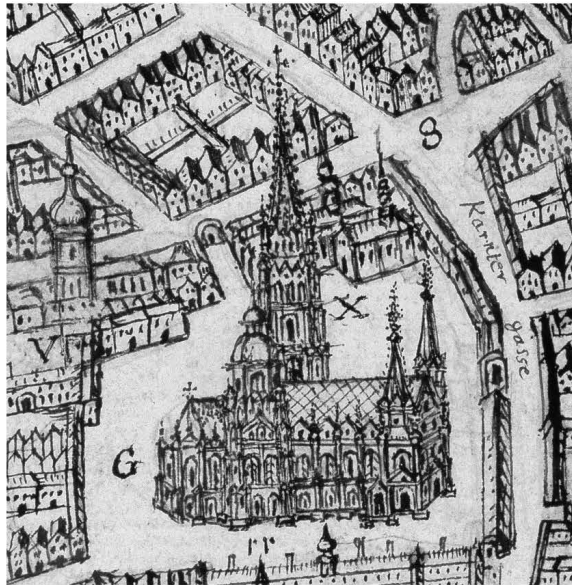 8
Karnter
gasse
X
V
G
rr